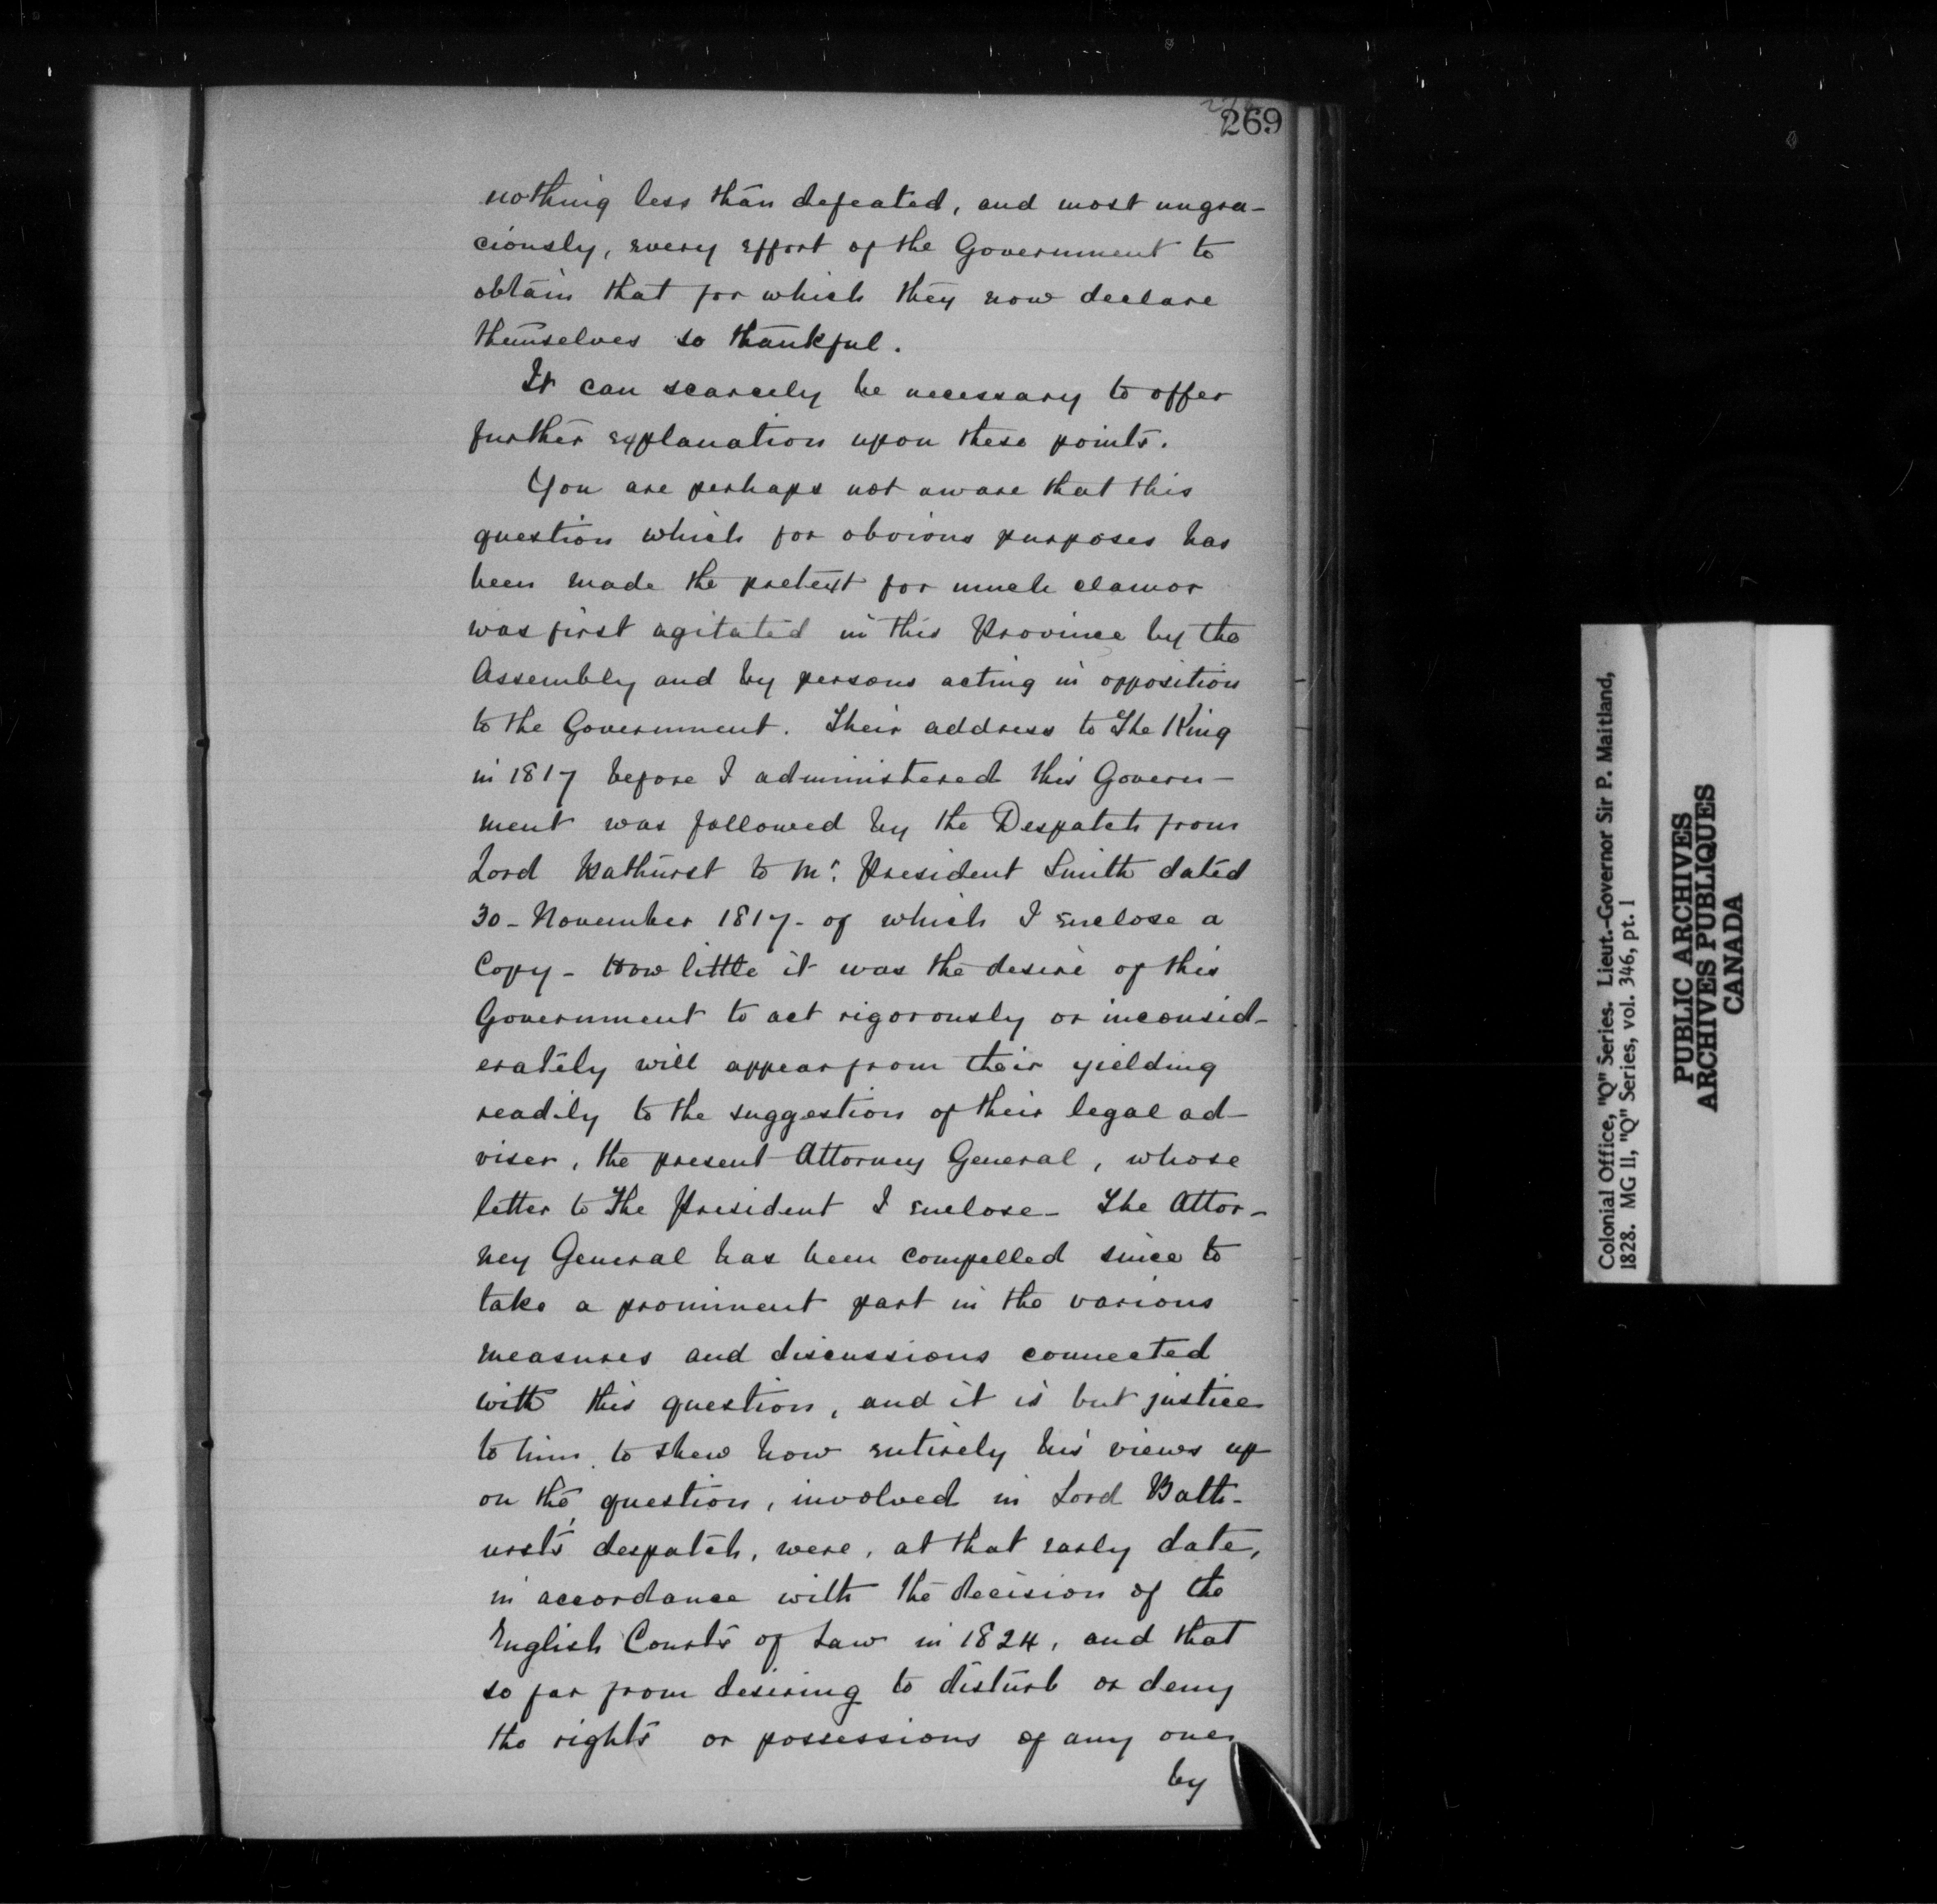 269
nothing less than defeated, and most ungra-
ciously, every effort of the Government to
obtain that for which they now declare
themselves so thankful.
It can scarcely be necessary to offer
further explanation upon these points.
You are perhaps not aware that this
question which for obvious purposes has
been made the pretext for much clamor
was first agitated in this Province by the
Assembly and by persons acting in opposition
to the Government. Their address to The King
in 1817 before I administered this Govern-
ment was followed by the Despatch from
Lord Bathurst to Mr. President Smith dated
30 - November 1817 - of which I enclose a
Copy - How little it was the desire of this
Government to act rigorously or inconsid-
erately will appear from their yielding
readily to the suggestion of their legal ad-
viser, the present Attorney General, whose
letter to The President I enclose - The Attor-
ney General has been compelled since to
take a prominent part in the various
measures and discussions connected
with this question, and it is but justice
to him, to shew how entirely his views up
on the question, involved in Lord Bath-
urst's despatch, were, at that early date,
in accordance with the decision of the
English Courts of Law in 1824, and that
so far from desiring to disturb or deny
the rights or possessions of any one,
by
Colonial Office, "Q" Series. Lieut.-Governor Sir P. Maitland,
1828. MG 11, "Q" Series, vol. 346, pt. 1
PUBLIC ARCHIVES
ARCHIVES PUBLIQUES
CANADA